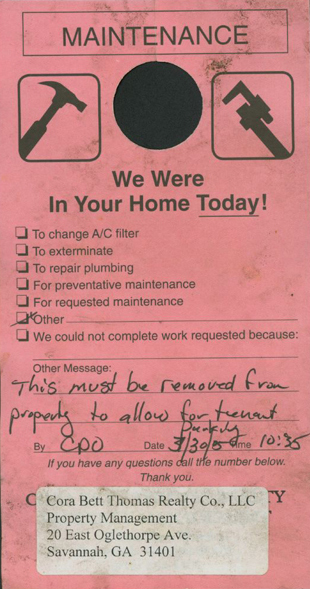 MAINTENANCE
We Were
In Your Home Today!
To change A/C filter
To exterminate
To repair plumbing
For preventative maintenance
For requested maintenance
Other
We could not complete work requested because:
Other Message:
This must be removed from
property to allow for tenent
parking
By CDO Date 3/30/5 Time 10:35
If you have any questions call the number below.
Thank you.
Cora Bett Thomas Realty Co., LLC
Property Management
20 East Oglethorpe Ave.
Savannah, GA 31401